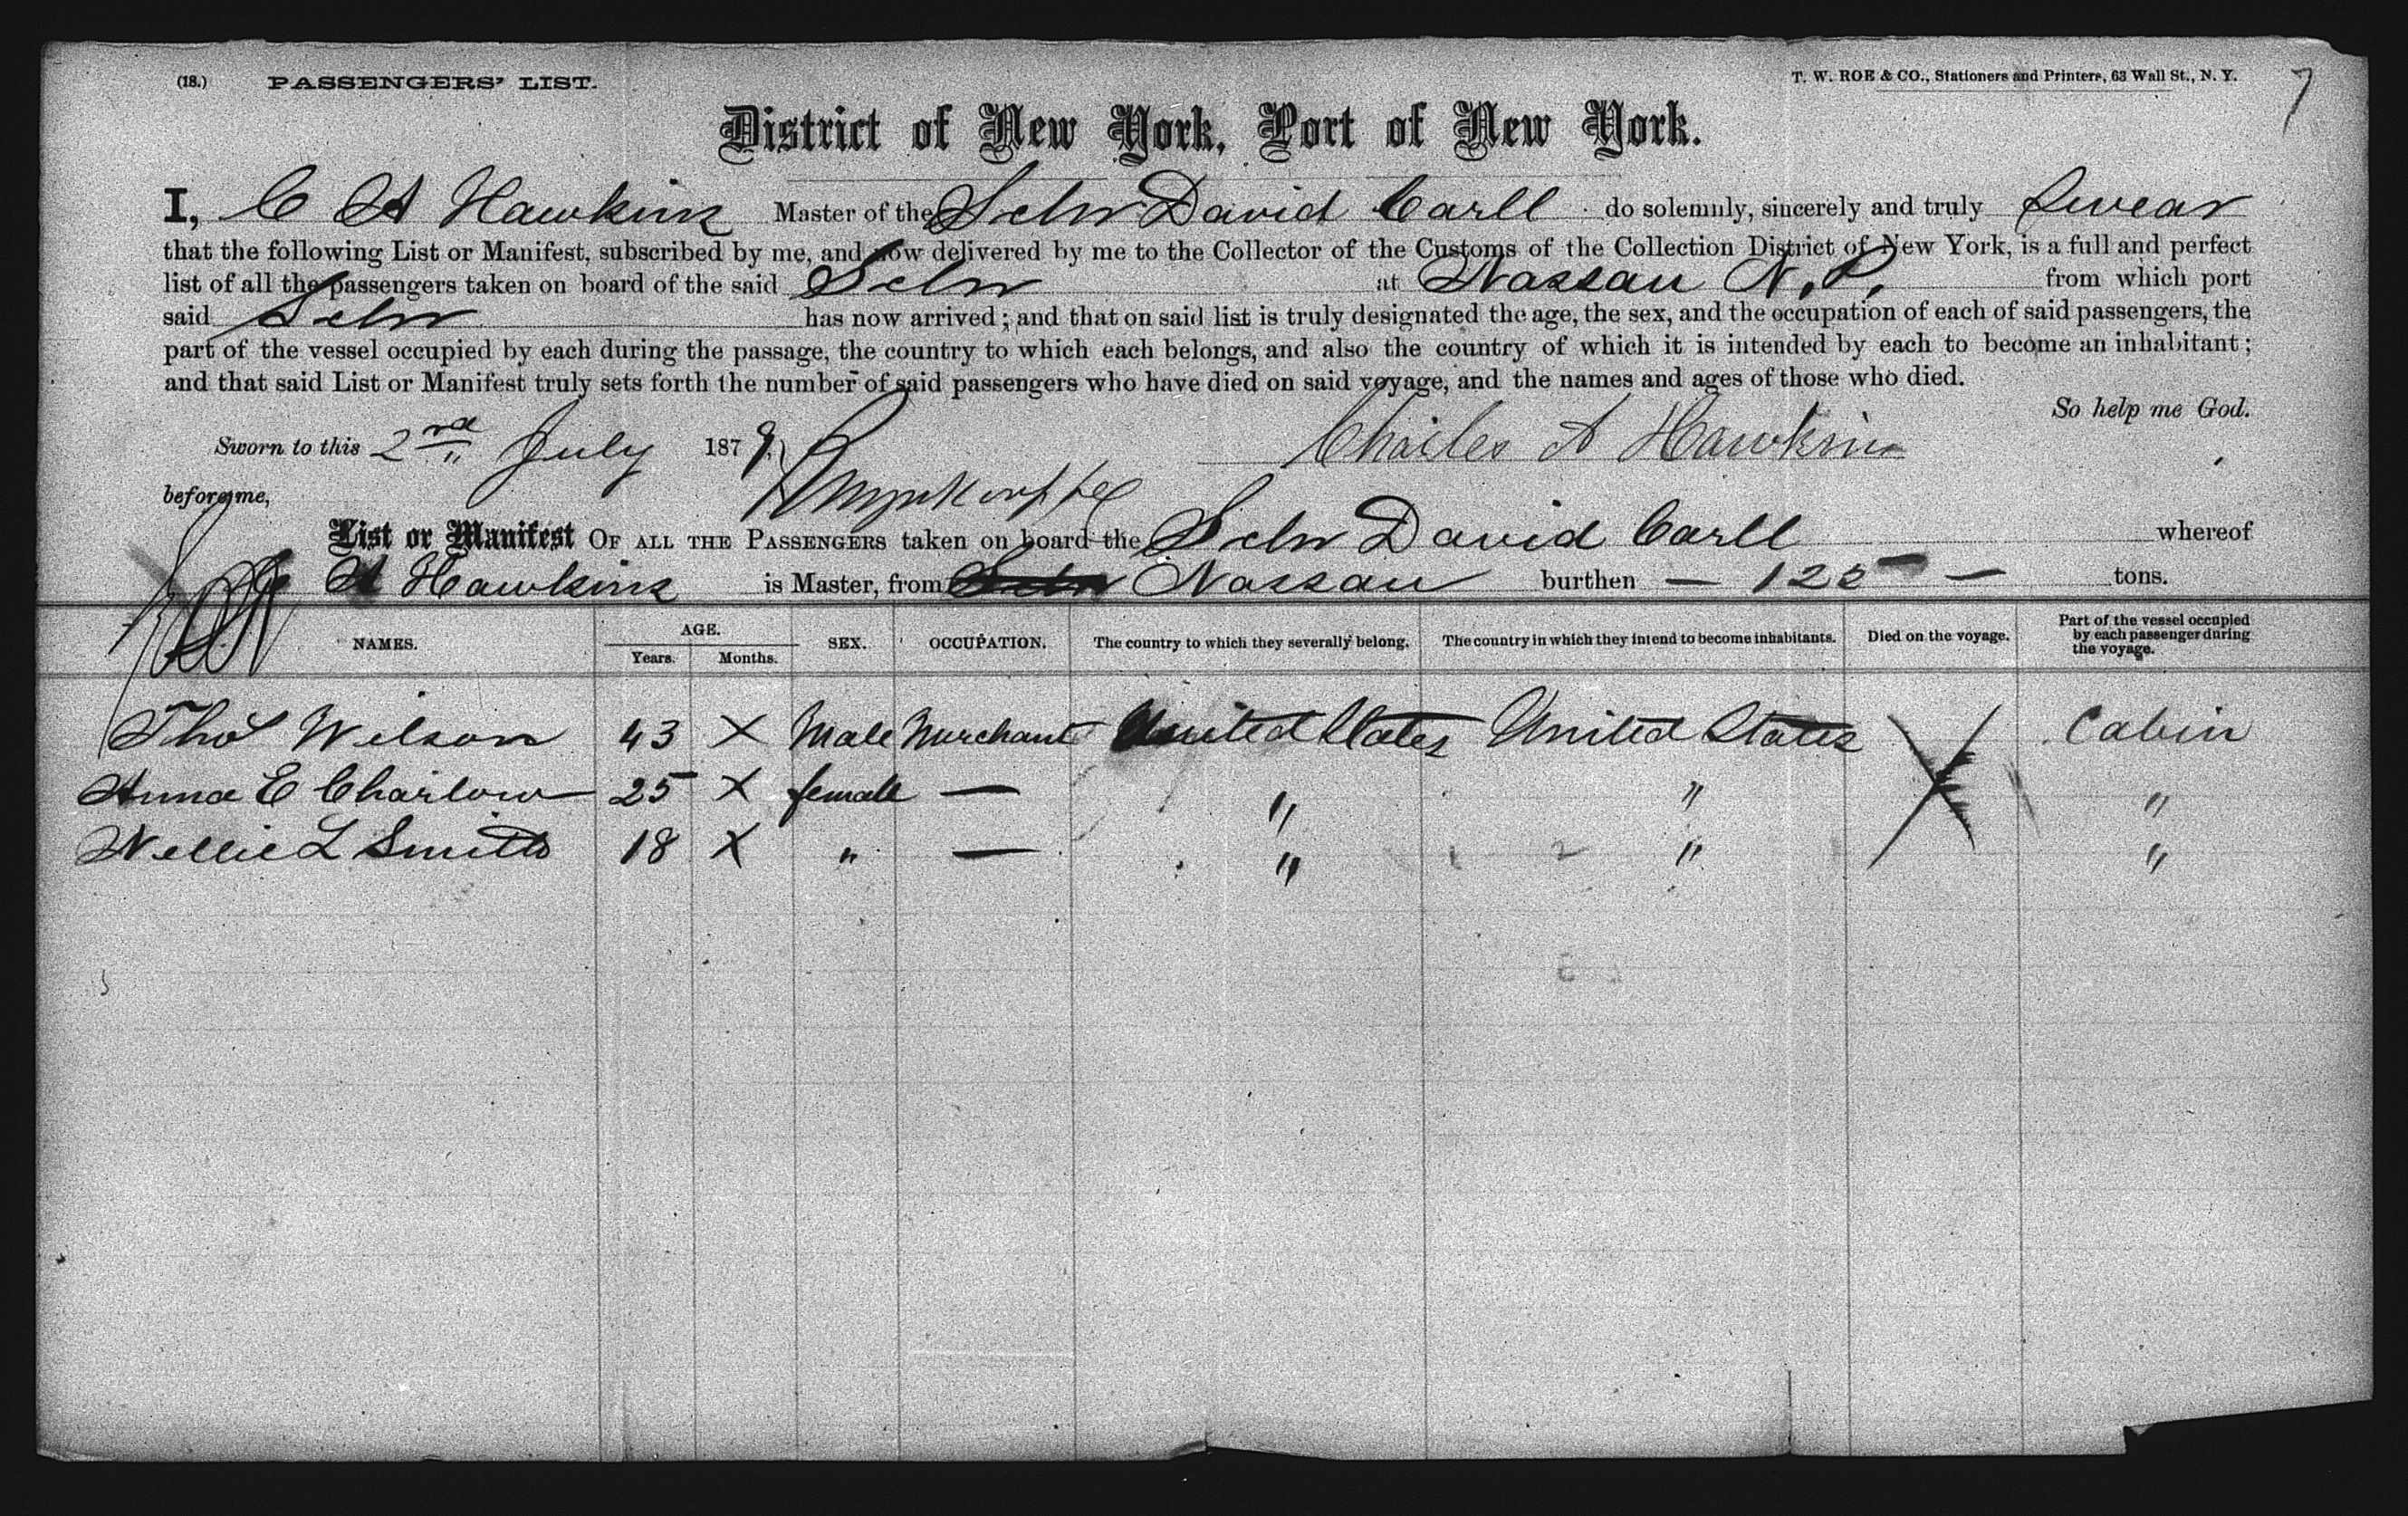 (18.) PASSENGERS' LIST. T. W. ROE & CO., Stationers and Printers, 63 Wall St., N. Y. 7
District of New York, Port of New York.
I, C A Hawkins Master of the Schr David Carll do solemnly, sincerely and truly swear
that the following List or Manifest, subscribed by me, and now delivered by me to the Collector of the Customs of the Collection District of New York, is a full and perfect
list of all the passengers taken on board of the said Schr at Nassau N. P. from which port
said Schr has now arrived; and that on said list is truly designated the age, the sex, and the occupation of each of said passengers, the
part of the vessel occupied by each during the passage, the country to which each belongs, and also the country of which it is intended by each to become an inhabitant;
and that said List or Manifest truly sets forth the number of said passengers who have died on said voyage, and the names and ages of those who died.
So help me God.
Sworn to this 2nd July 1879, Charles A Hawkins
before me,
List or Manifest OF ALL THE PASSENGERS taken on board the Schr David Carll whereof
C A Hawkins is Master, from Nassau burthen — 125 — tons.
NAMES. AGE. Years. Months. SEX. OCCUPATION. The country to which they severally belong. The country in which they intend to become inhabitants. Died on the voyage. Part of the vessel occupied by each passenger during the voyage.
Thos Wilson 43 X Male Merchant United States United States Cabin
Anna E Charlow 25 X female — " " "
Nellie L Smith 18 X " — " " "